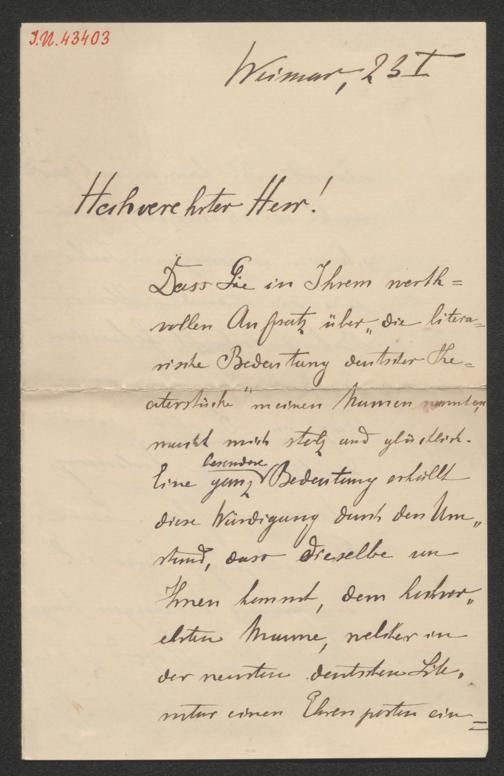 I.N. 43403
Weimar, 23 I
Hochverehrter Herr!
Dass Sie in Ihrem werth=
vollen Aufsatz über „die litera-
rische Bedeutung deutscher The=
aterstücke" meinen Namen nannten
macht mich stolz und glücklich.
besondere
Eine ganz Bedeutung erhält
diese Würdigung durch den Um„
stand, dass dieselbe von
Ihnen kommt, dem hochver„
ehrten Manne, welcher in
der neusten deutschen Lite„
ratur einen Ehrenposten ein=